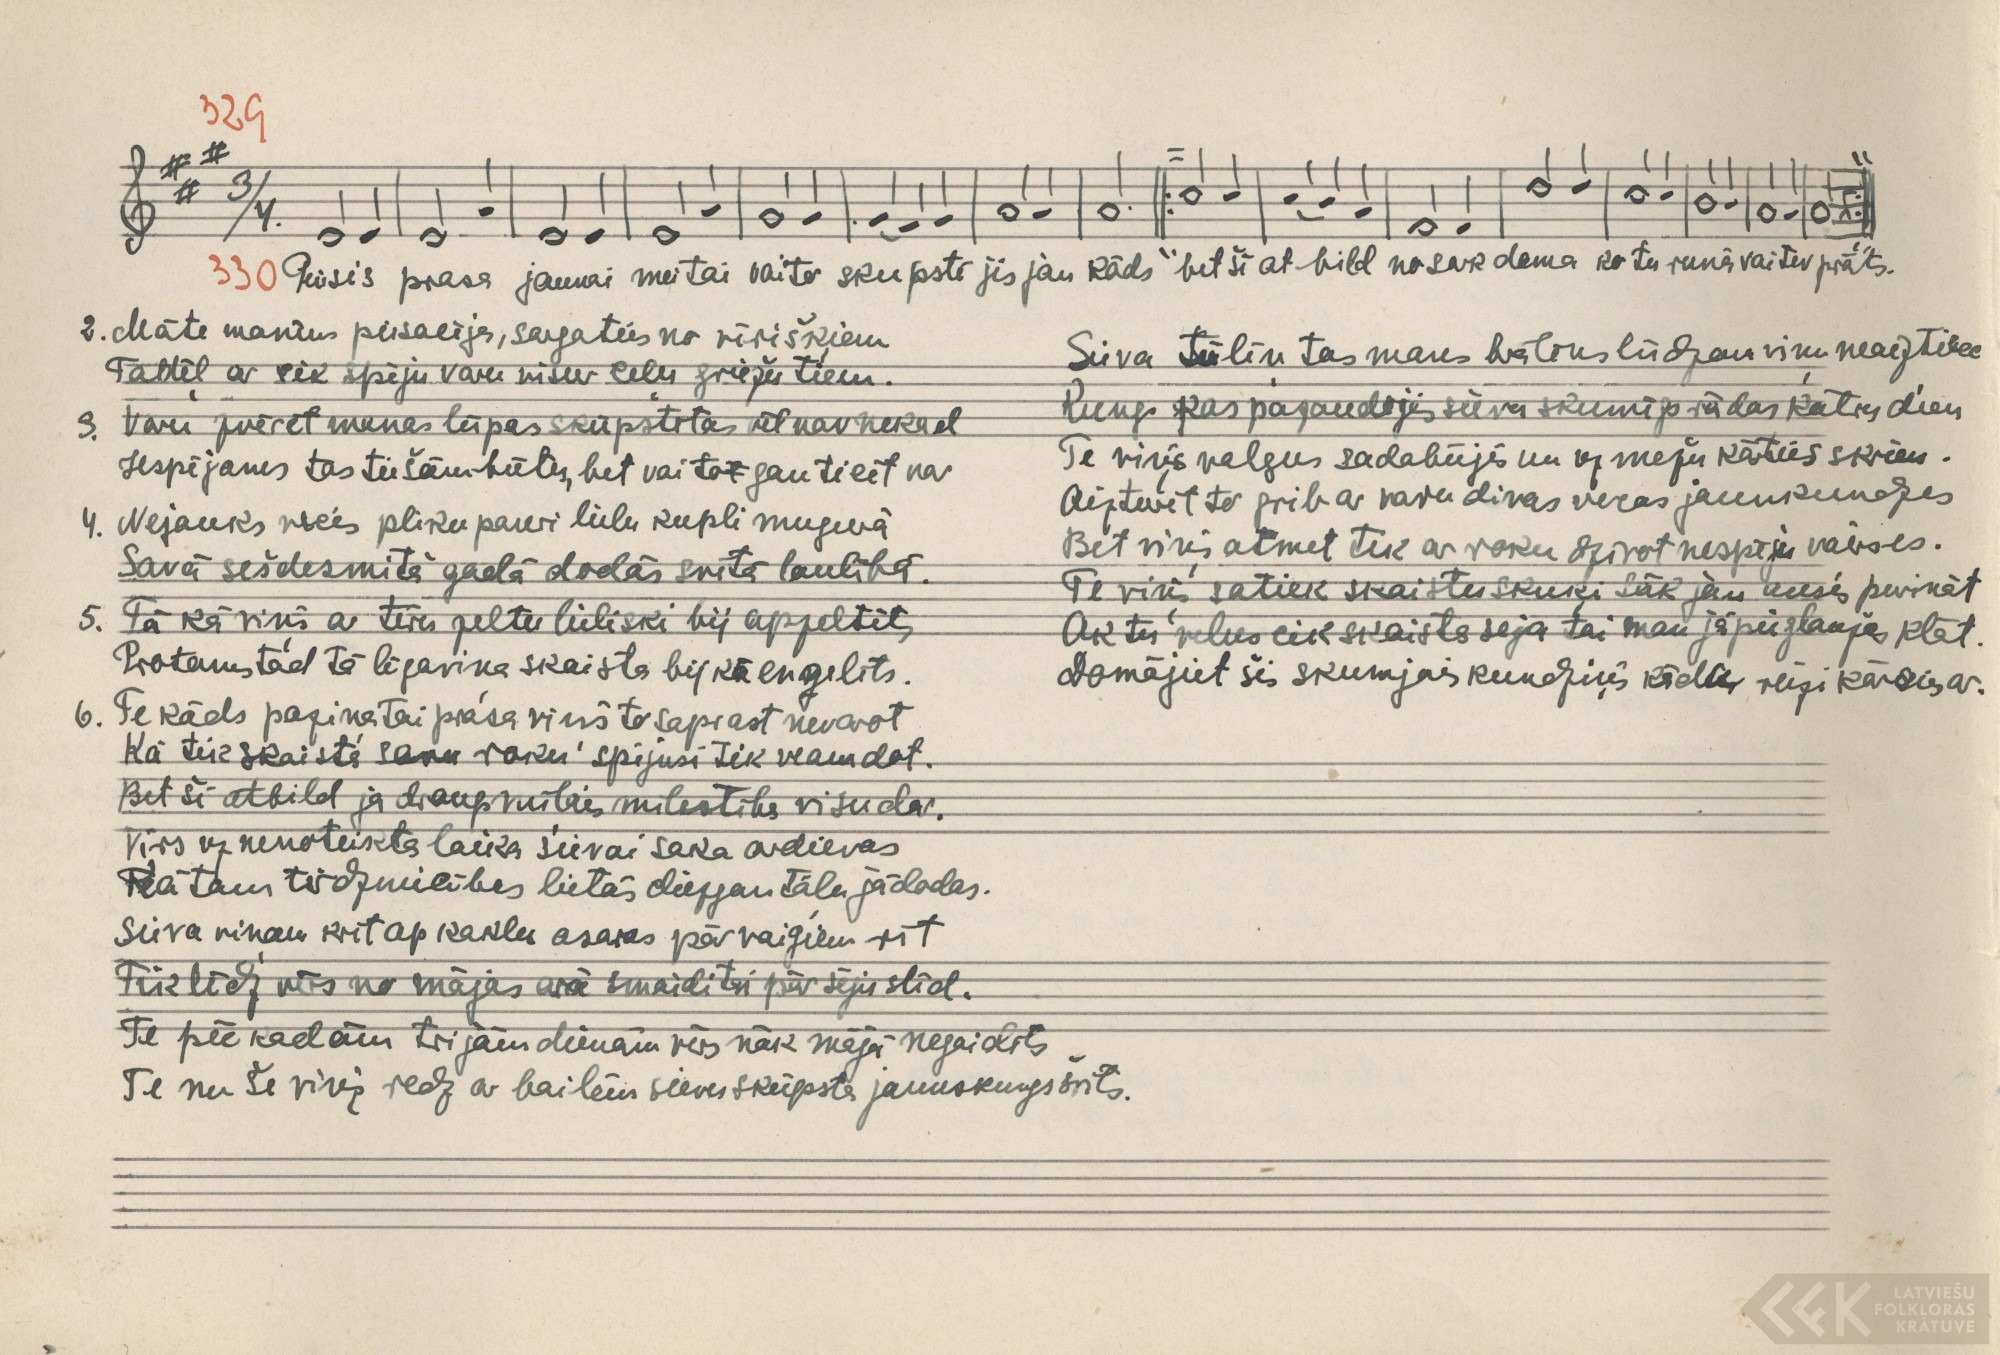 329
3/4.
330 Puisis prasa jaunai meitai vai to skūpstījis jau kāds" bet šī at-bild nosarkdama ko tu runā vai tev prāts.
2. Māte man's piesacīja, sargāties no vīriškiem
Tādēļ ar cik spēju varu visur ceļu griežu tiem.
3. Varu zvērēt manas lūpas skūpstītas vēl nav nekad
Iespējams tas tiešām būtu, bet vai to gan ticēt var
4. Nejauks vecis pliku pauri lielu kupli mugurā
Savā sešdesmitā gadā dodās svētā laulībā.
5. Tā kā viņš ar tīru zeltu lieliski bij apzeltīts
Protams tād tā līgaviņa skaista bij kā engelīts.
6. Te kāds paziņa tai prasa viņš to saprast nevarot
Kā tik skaista savu roku spējusi tik vecam dot.
Bet šī atbild ja draugs mīļais mīlestība visu dar.
Vīrs uz nenoteikta laika sievai saka ardievas
tam tirdzniecības lietās diezgan tālu jādodas.
Sieva viņam krīt ap kaklu asaras pār vaigiem rit
Tik līdz vīrs no mājas ārā smaidi tai pār seju slīd.
Te pēc kādām trijām dienām vīrs nāk mājā negaidīts
Te nu še viņš redz ar bailēm sievu skūpsta jaunskungs švīts.
Sieva tūlīn tas mans brālēns lūdzu viņu neaiztiec
Kungs kas pazaudējis sievu skumīgs rādās katru dien
Te viņš valgus sadabūjis un uz mežu kārties skrien.
Aizturēt to grib ar varu divas vecas jaunkundzes
Bet viņš atmet tik ar roku dzīvot nespēju vairs es.
Te viņš satiek skaistu skuķi sāk jau ūsas purināt
Ak tu velns cik skaista seja tai man jāpieglaužas klāt.
Domājiet šis skumjais kundziņš kādu reizi kārsies ar.
LATVIEŠU
FOLKLORAS
KRĀTUVE